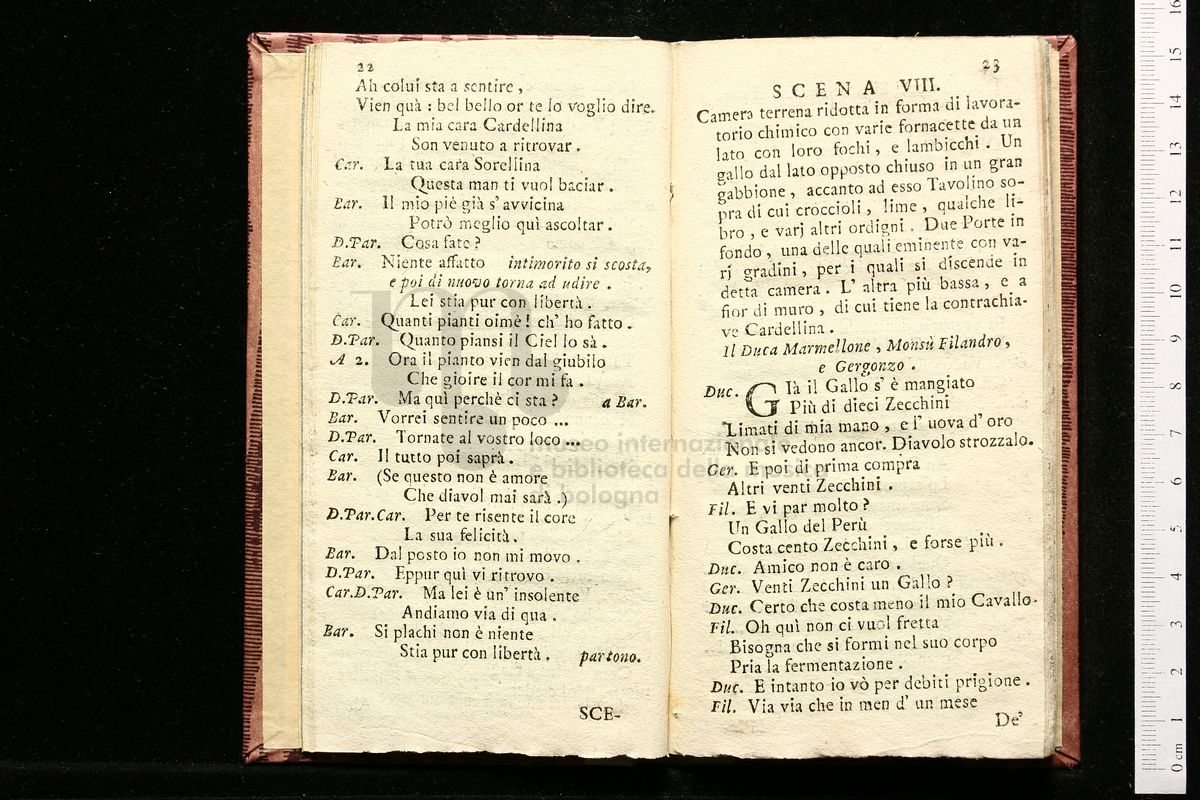 22
Ah colui sta a sentire,
Vien quà: bel bello or te lo voglio dire.
La mia cara Cardellina
Son venuto a ritrovar.
Car. La tua cara Sorellina
Questa man ti vuol baciar.
Bar. Il mio piè già s'avvicina
Potrò meglio quì ascoltar.
D.Par. Cosa fate?
Bar. Niente affatto intimorito si scosta,
e poi di nuovo torna ad udire.
Lei stia pur con libertà.
Car. Quanti pianti oimè! ch' ho fatto.
D.Par. Quanto piansi il Ciel lo sà.
A 2. Ora il pianto vien dal giubilo
Che gioire il cor mi fa.
D.Par. Ma quì perchè ci sta? a Bar.
Bar. Vorrei sentire un poco ...
D.Par. Tornate al vostro loco ...
Car. Il tutto poi saprà.
Bar. (Se questo non è amore
Che diavol mai sarà.)
D.Par.Car. Per te risente il core
La sua felicità.
Bar. Dal posto io non mi movo.
D.Par. Eppur quì vi ritrovo.
Car.D.Par. Ma lei è un' insolente
Andiamo via di qua.
Bar. Si plachi non è niente
Stia pur con libertà. partono.
SCE-
23
SCENA VIII.
Camera terrena ridotta in forma di lavora-
torio chimico con varie fornacette da un
lato con loro fochi, e lambicchi. Un
gallo dal lato opposto chiuso in un gran
gabbione, accanto ad esso Tavolino so-
pra di cui croccioli, lime, qualche li-
bro, e varj altri ordigni. Due Porte in
fondo, una delle quali eminente con va-
rj gradini, per i quali si discende in
detta camera. L' altra più bassa, e a
fior di muro, di cui tiene la contrachia-
ve Cardellina.
Il Duca Marmellone, Monsù Filandro,
e Gergonzo.
Duc. Già il Gallo s' è mangiato
Più di dieci Zecchini
Limati di mia mano, e l' uova d' oro
Non si vedono ancor. Diavolo strozzalo.
Ger. E poi di prima compra
Altri venti Zecchini.
Fil. E vi par molto?
Un Gallo del Perù
Costa cento Zecchini, e forse più.
Duc. Amico non è caro.
Ger. Venti Zecchini un Gallo?
Duc. Certo che costa meno il mio Cavallo.
Fil. Oh quì non ci vuol fretta
Bisogna che si formi nel suo corpo
Pria la fermentazione.
Duc. E intanto io vò per debiti prigione.
Fil. Via via che in men d' un mese
De'
museo internazionale
e biblioteca della musica
bologna
0 cm 1 2 3 4 5 6 7 8 9 10 11 12 13 14 15 16